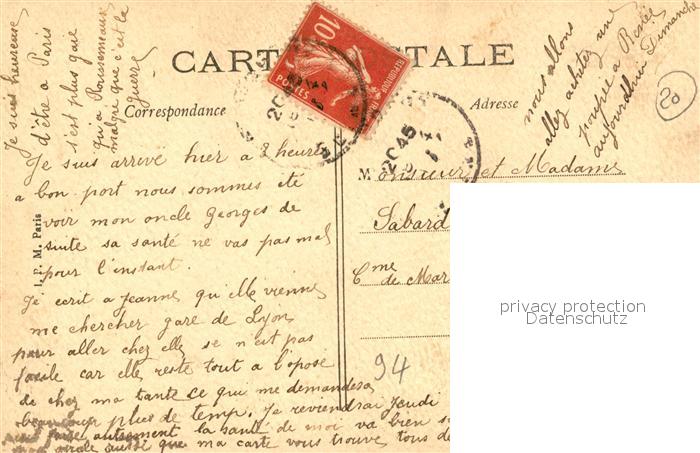 CARTE POSTALE
Correspondance
Adresse
Je suis heureuse
d'être a Paris
s'est plus gaie
qu'a Rousseniaux
malgré que c'est la
guerre
nous allons
allez achetez une
poupée a Renée
aujourdhui Dimanche
20
10
POSTES
20 45
Je suis arrivé hier a 2 heures
a bon port nous sommes été
voir mon oncle Georges de
suite sa santé ne vas pas mal
pour l'instant.
Je écrit a Jeanne qu'elle vienne
me chercher gare de Lyon
pour aller chez elle, se n'est pas
facile car elle reste tout a l'oposé
de chez ma tante ce qui me demandera
beaucoup plus de temp. Je reviendrai Jeudi
autrement la santé de moi va bien
oncle aussi que ma carte vous trouve tous de
Monsieur et Madame
Sabard
Cme de Mar
94
I. P. M. Paris
privacy protection
Datenschutz